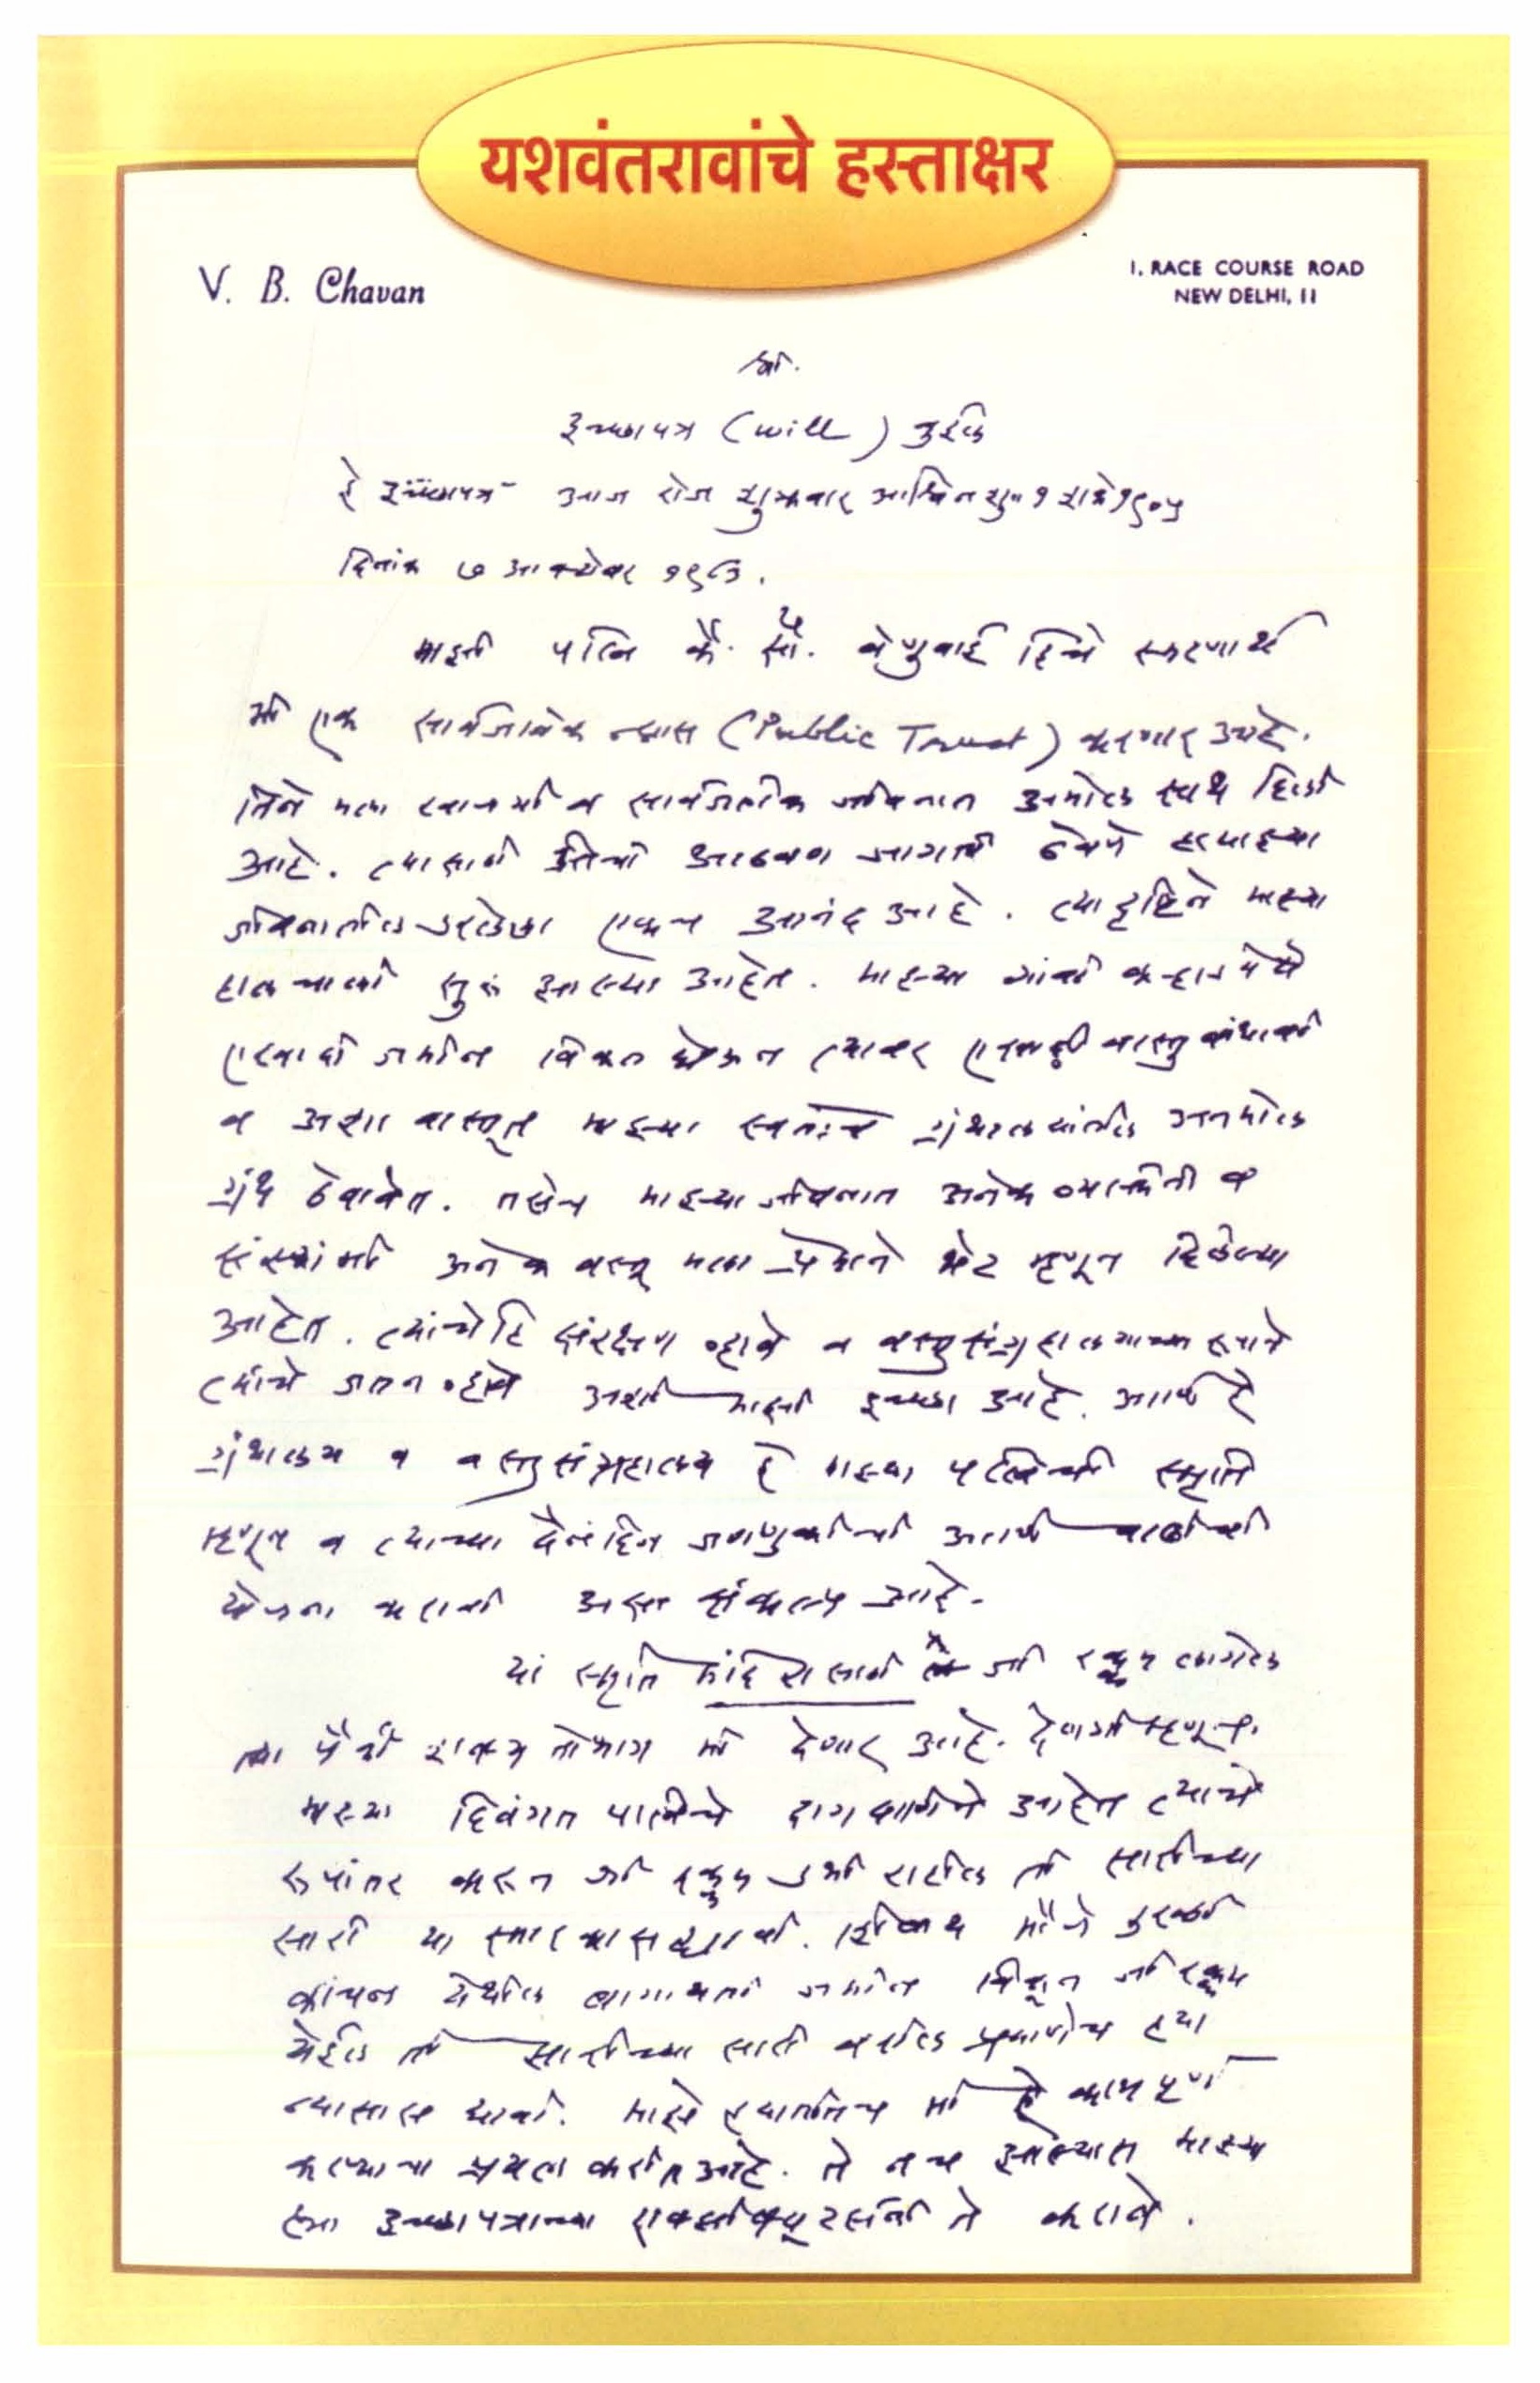 यशवंतरावांचे हस्ताक्षर
Y. B. Chavan
1, RACE COURSE ROAD
NEW DELHI, 11
श्री.
इच्छापत्र (will)
हे इच्छापत्र आज रोज शुक्रवार आश्विन शु॥ १ शके १९०५
दिनांक ७ आक्टोबर १९८३.
माझी पत्नि कै. सौ. वेणुबाई हिचे स्मरणार्थ
मी एक सार्वजनिक न्यास (Public Trust) करणार आहे.
तिने मला खाजगी व सार्वजनीक जीवनात अमोल साथ दिली
आहे. त्यासाठी तिची आठवण जागती ठेवणे हाच माझ्या
जीवनातील उरलेला एकच आनंद आहे. त्या दृष्टिने माझ्या
हालचाली सुरू झाल्या आहेत. माझ्या गांवी कऱ्हाड येथे
एखादी जमीन विकत घेऊन त्यावर एखादी वास्तु बांधावी
व अशा वास्तूत माझ्या स्वतःचे ग्रंथालयांतील अनमोल
ग्रंथ ठेवावेत. तसेच माझ्या जीवनात अनेक व्यक्तिंनी व
संस्थांनी अनेक वस्तू मला प्रेमाने भेट म्हणून दिलेल्या
आहेत. त्यांचेहि संरक्षण व्हावे व वस्तुसंग्रहालयाच्या रूपाने
त्यांचे जतन व्हावे अशी माझी इच्छा आहे. आणि हे
ग्रंथालय व वस्तुसंग्रहालय हे माझ्या पत्निची स्मृति
म्हणून व त्याच्या दैनंदिन जपणुकीची आणि वाढीची
योजना करावी असा संकल्प आहे.
या स्मृति मंदिरासाठी जी रक्कम लागेल
त्या पैकी शक्य तो भाग मी देणार आहे. देणगी म्हणून.
माझ्या दिवंगत पत्निचे दागदागिने आहेत त्याचे
रुपांतर करून जी रक्कम उभी राहील ती सारीच्या
सारी या स्मारकास द्यावी. शिवाय मौजे फुरसुंगी
येथील बागायती जमीन विकून जी रक्कम
येईल ती सारीच्या सारी वरील प्रमाणेच ह्या
न्यासास द्यावी. माझे हयातीतच मी हे काम पूर्ण
करण्याचा प्रयत्न करीत आहे. ते न झाल्यास माझ्या
ह्या इच्छापत्राच्या एक्झीक्युटर्सनी ते करावे.